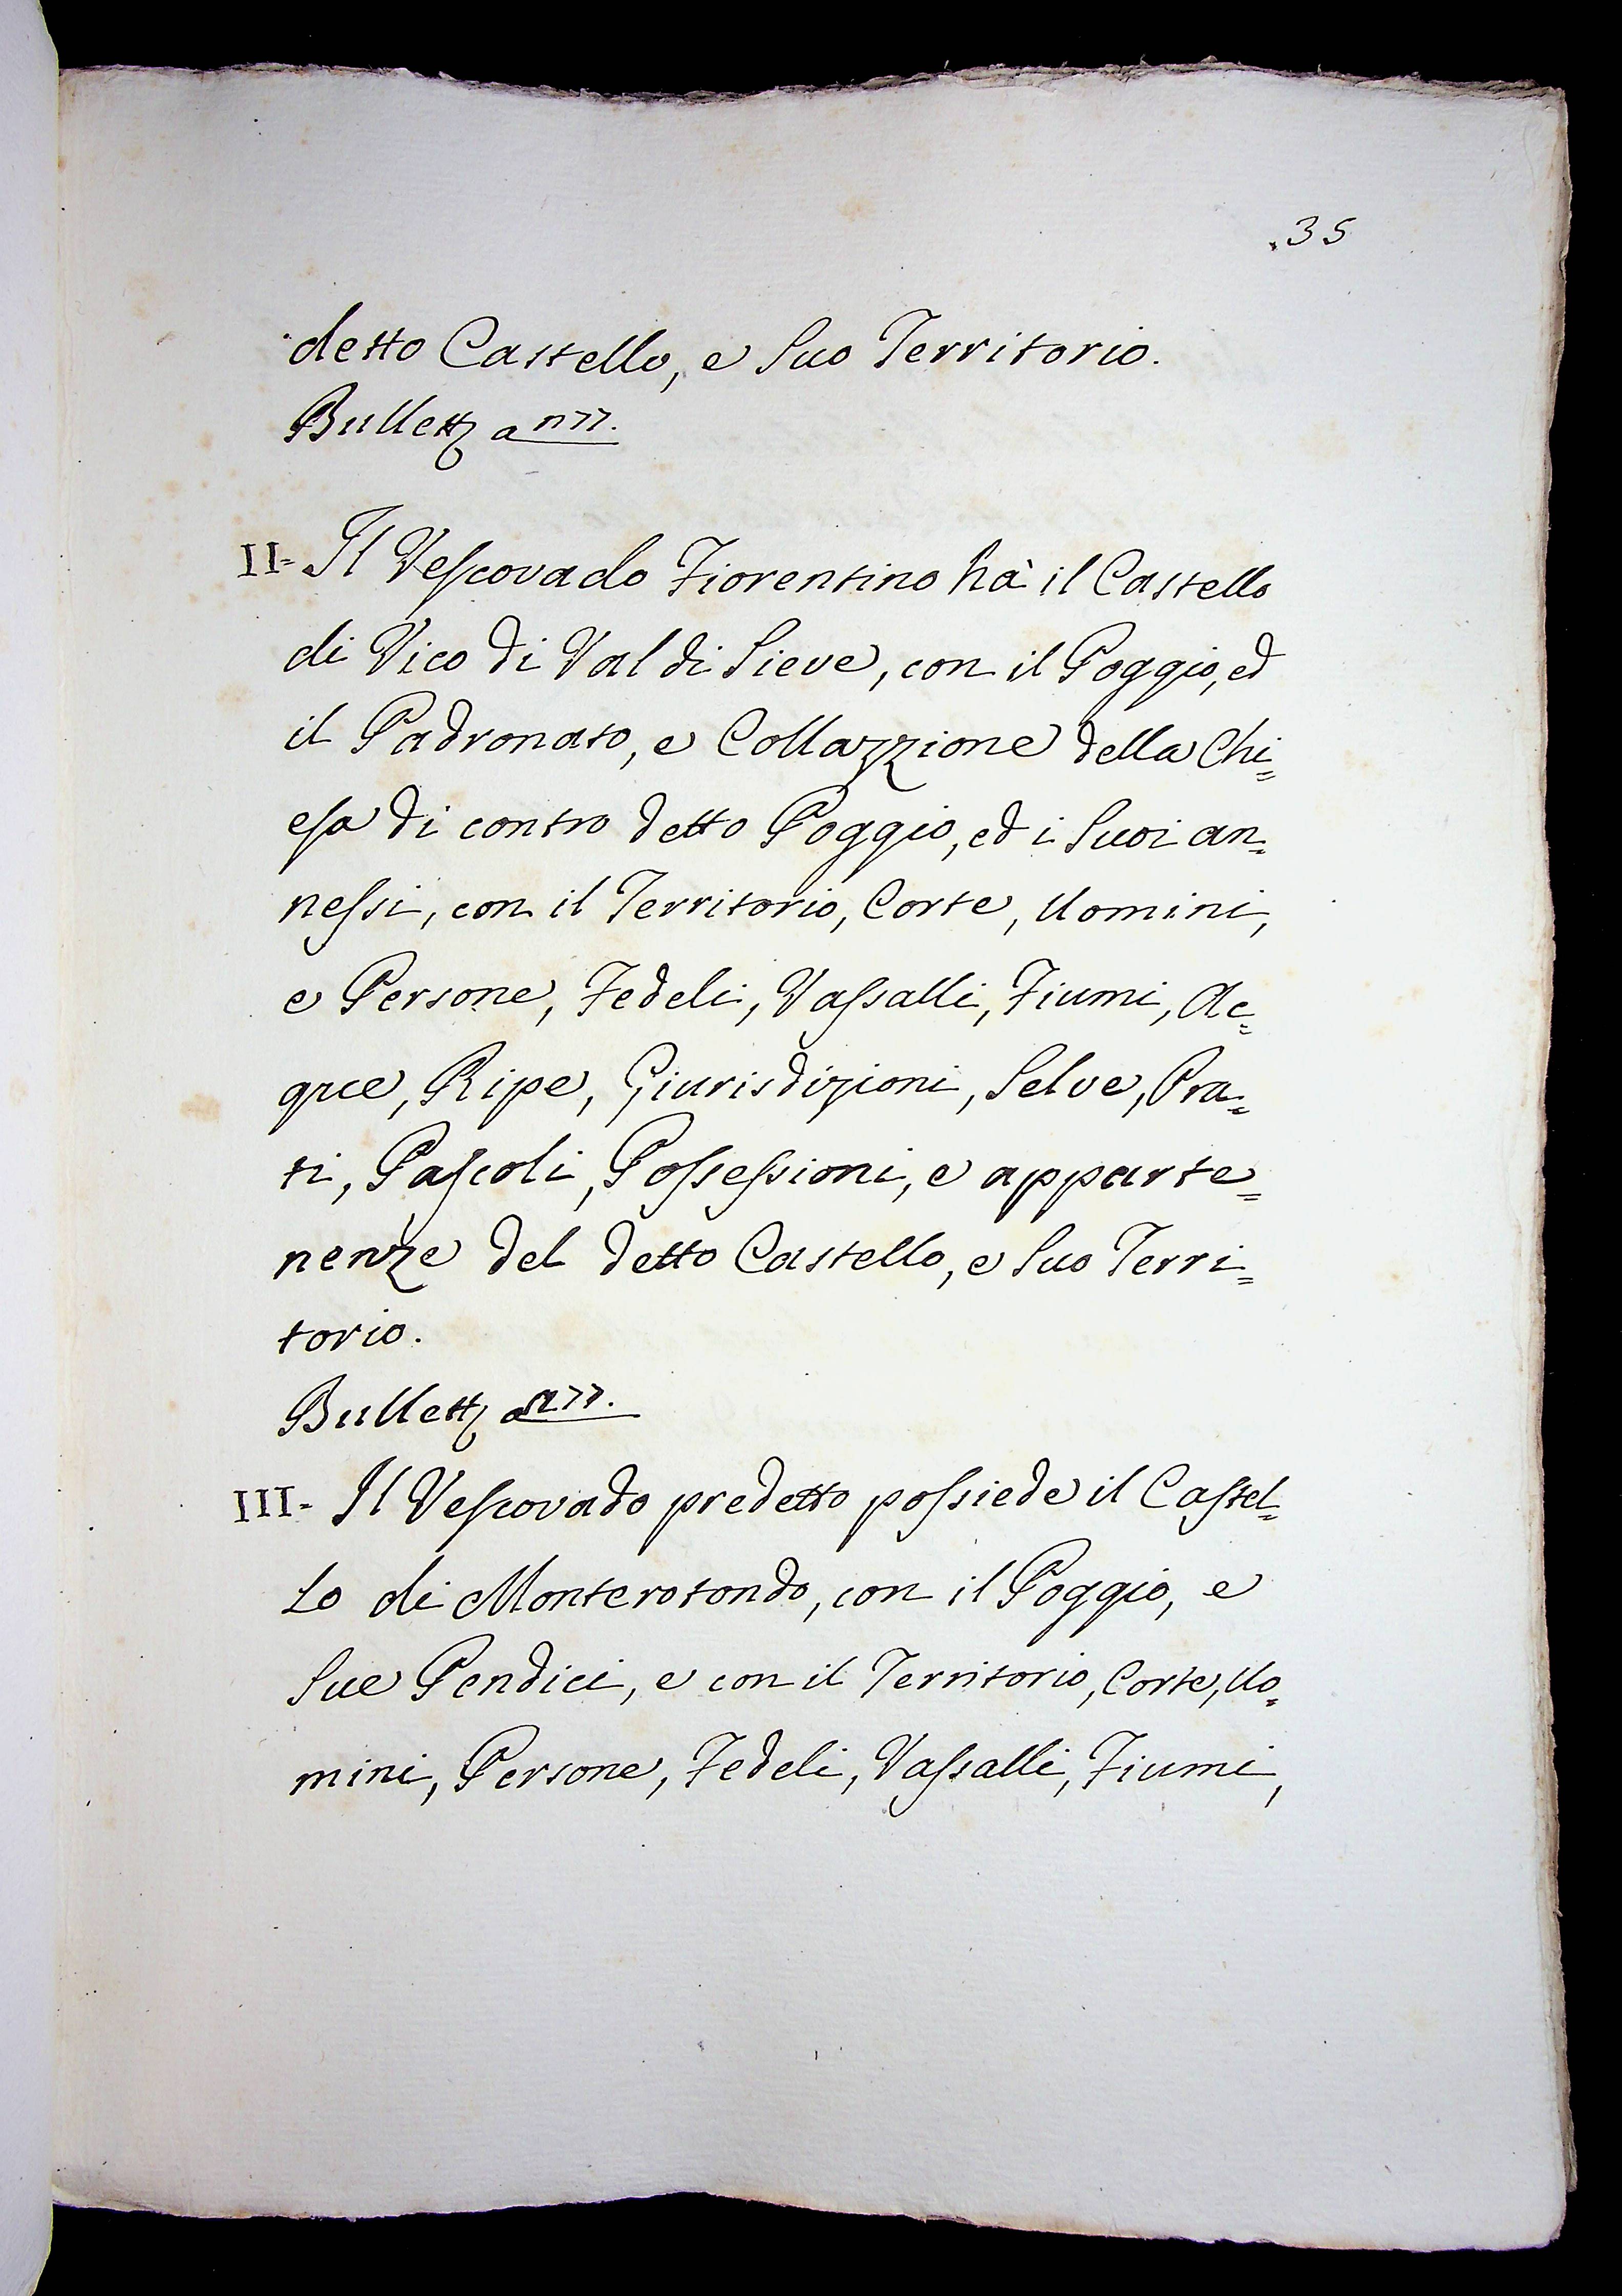 35
detto Castello, e Suo Territorio.
Bullett a
II= Il Vescovado Fiorentino hà il Castello
di Vico di Val di Sieve, con il Poggio, ed
il Padronato, e Collazzione della Chi=
esa di contro detto Poggio, ed i Suoi an=
nessi, con il Territorio, Corte, Uomini,
e Persone, Fedeli, Vassalli, Fiumi, Ac=
que, Ripe, Giurisdizioni, Selve, Pra=
ti, Pascoli, Possessioni, e apparte=
nenze del detto Castello, e Suo Terri=
torio.
Bullett a
III= Il Vescovado predetto possiede il Castel=
lo di Monterotondo, con il Poggio, e
Sue Pendici, e con il Territorio, Corte, Uo=
mini, Persone, Fedeli, Vassalli, Fiumi,